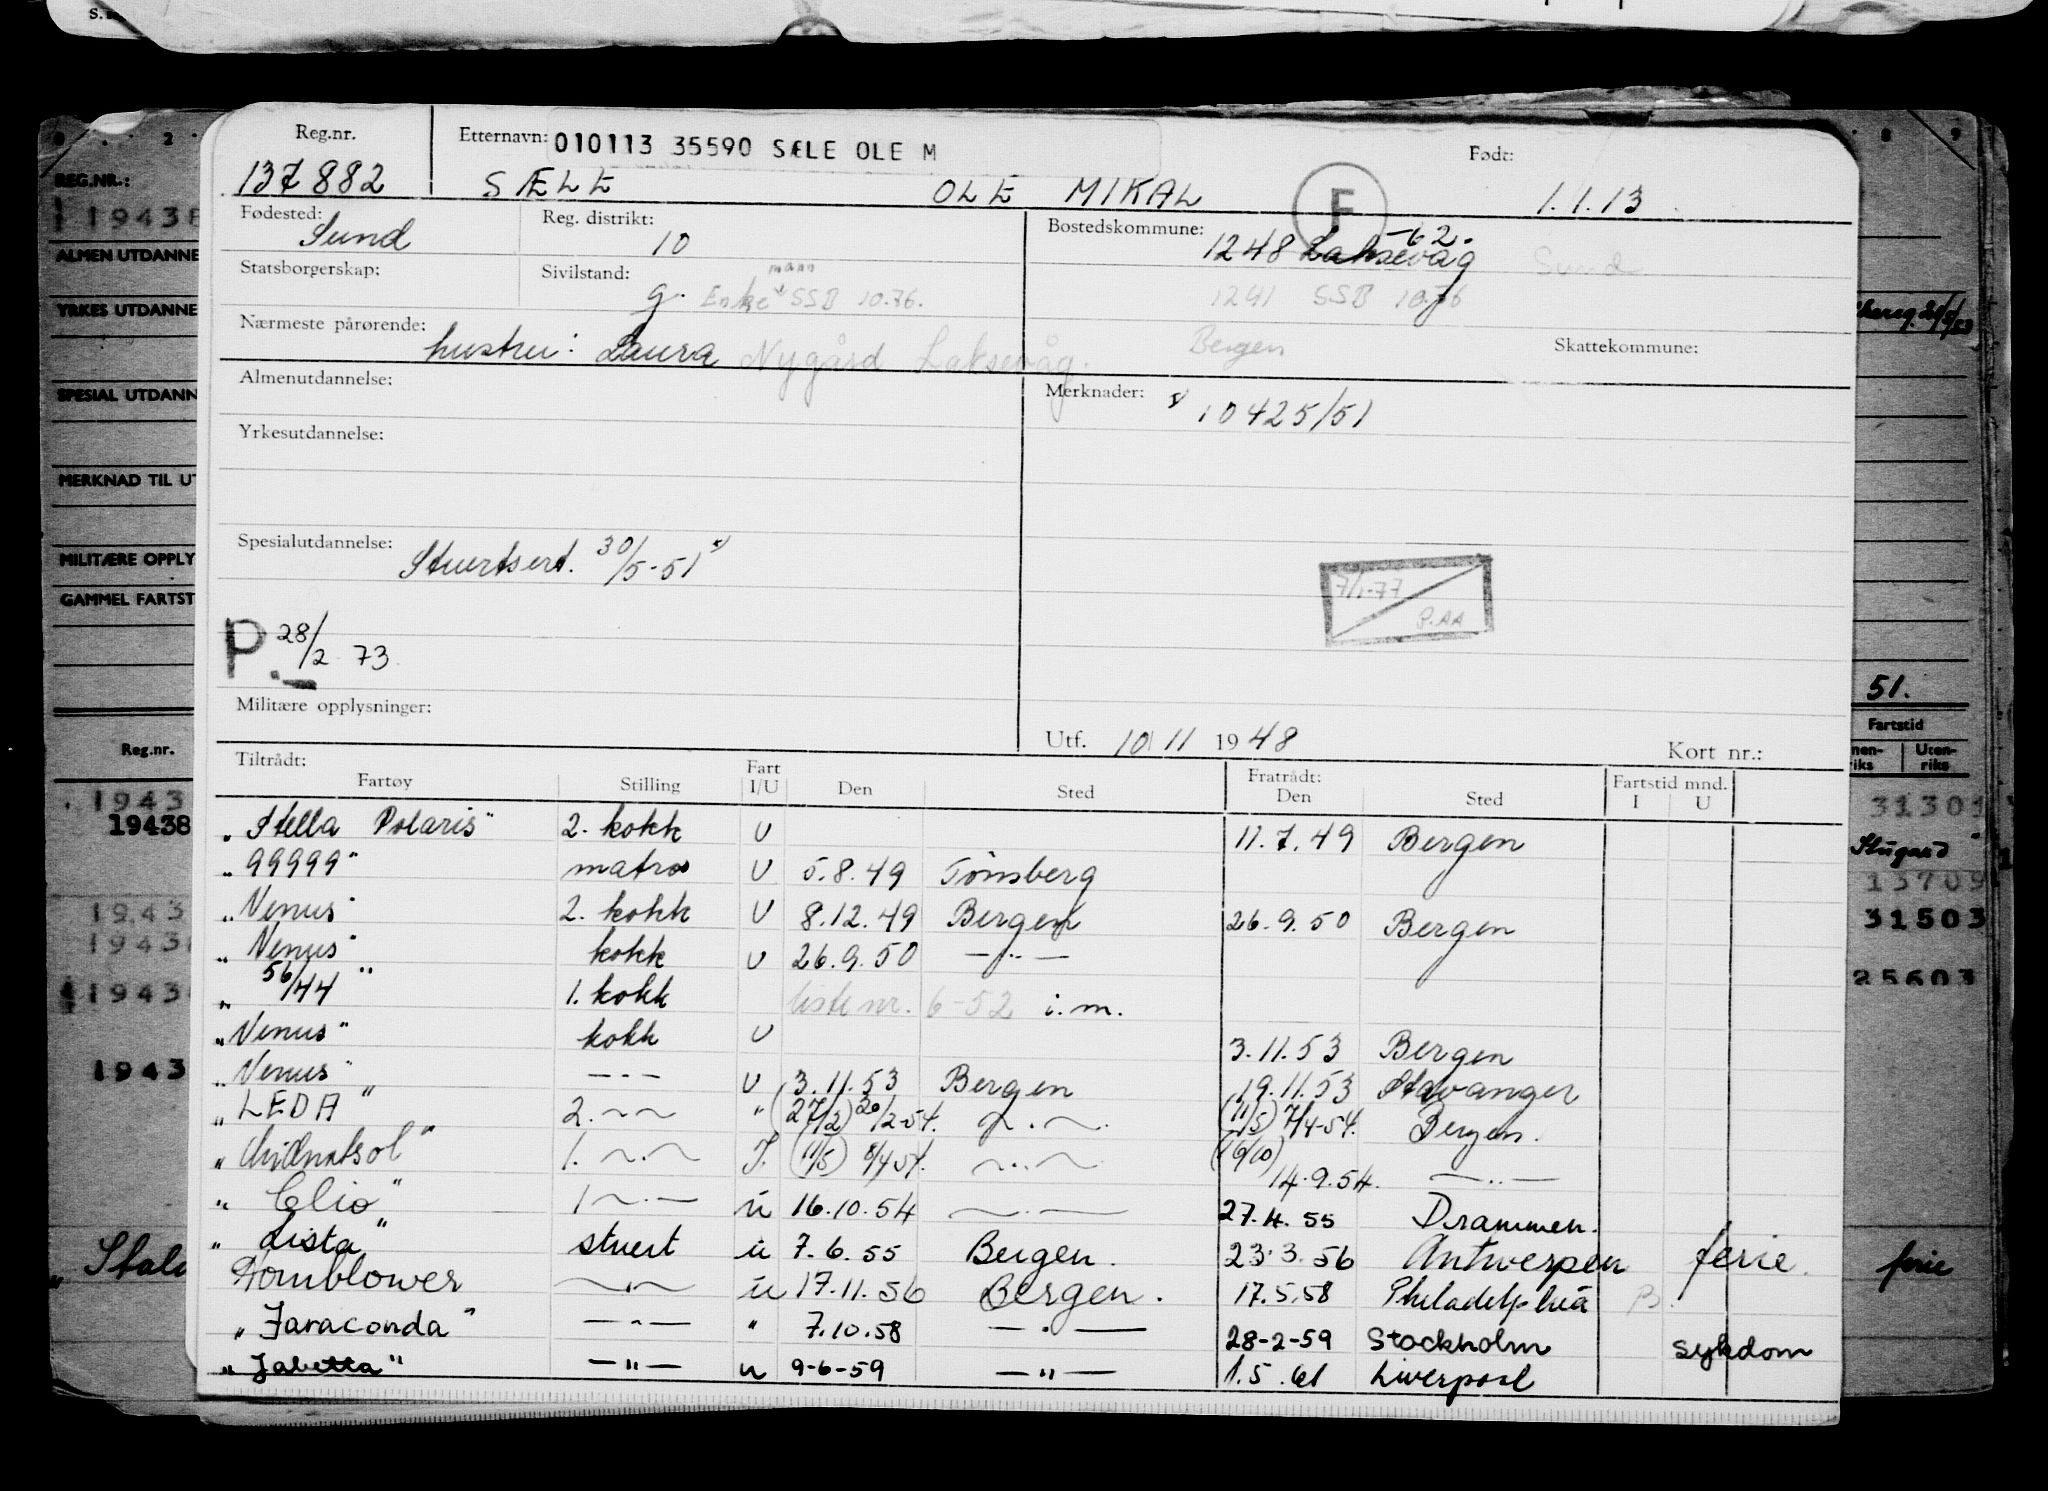 Reg.nr. Etternavn: 010113 35590 SÆLE OLE M Født:
137882 SÆLE OLE MIKAL F 1.1.13
Fødested: Sund Reg. distrikt: 10 Bostedskommune: 1248 Laksevåg -62. Sund
Statsborgerskap: Sivilstand: g. Enke mann SSB 10.76. 1241 SSB 10.76
Nærmeste pårørende: hustru: Laura Nygård Laksevåg. Bergen Skattekommune:
Almenutdannelse: Merknader: 10425/51
Yrkesutdannelse:
Spesialutdannelse: Stuertsert. 30/5-51
7/1-77 P.AA
P. 28/2 73
Militære opplysninger:
Utf. 10/11 1948 Kort nr.:
Tiltrådt: Fratrådt: Fartstid mnd.
Fartøy Stilling Fart I/U Den Sted Den Sted I U
"Stella Polaris" 2. kokk U 11.7.49 Bergen
"99999" matros U 5.8.49 Tönsberg
"Venus" 2. kokk U 8.12.49 Bergen 26.9.50 Bergen
"Venus" kokk U 26.9.50 —"—
"56/44" 1. kokk liste nr. 6-52 i.m.
"Venus" kokk U 3.11.53 Bergen
"Venus" —"— U 3.11.53 Bergen 19.11.53 Stavanger
"LEDA" 2. —"— " (27/2) 20/2-54. —"— (11/5) 7/4-54. Bergen.
"Midnatsol" 1. —"— I. (11/5) 8/4 54. —"— (19/10) 14.9.54. —"—
"Clio" 1 —"— u 16.10.54 —"— 27.4.55 Drammen.
"Lista" stuert u 7.6.55 Bergen. 23.3.56 Antwerpen ferie.
Hornblower —"— u 17.11.56 Bergen. 17.5.58 Philadelphia
"Jaraconda" —"— " 7.10.58 —"— 28-2-59 Stockholm sykdom
"Jabetta" —"— u 9-6-59 —"— 1.5.61 Liverpool
REG.NR.:
19438
ALMEN UTDANNE
YRKES UTDANNE
SPESIAL UTDANN
MERKNAD TIL UT
MILITÆRE OPPLY
GAMMEL FARTST
Reg.nr.
1943
19438
1943
1943
1943
1943
51.
Fartstid
Uten-
riks
31301
13709
31503
25603
ferie